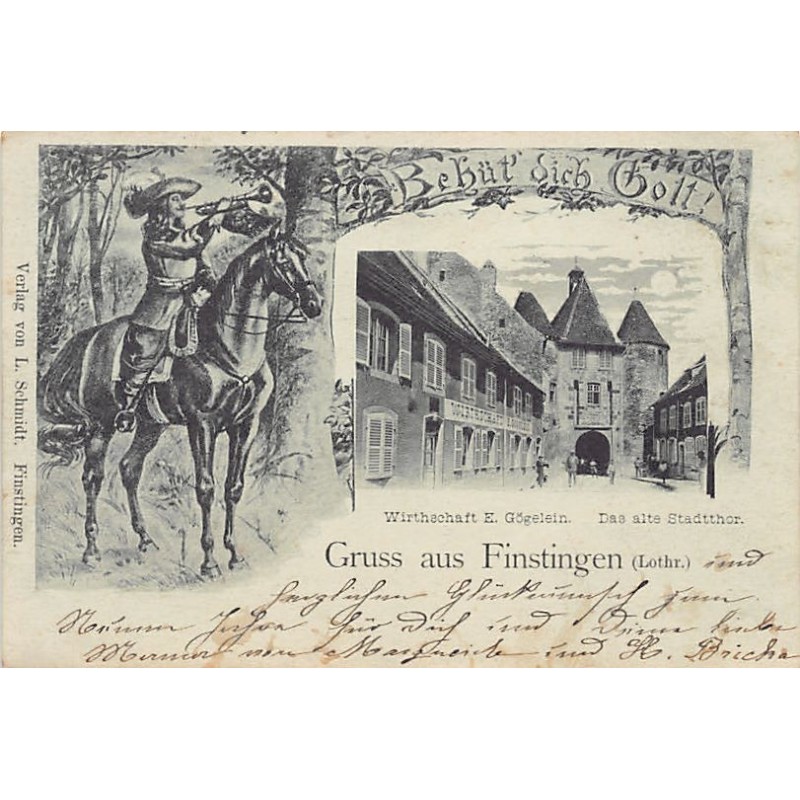 Behüt' dich Gott!
Verlag von L. Schmidt. Finstingen.
Wirthschaft E. Gögelein. Das alte Stadtthor.
Gruss aus Finstingen (Lothr.) und
herzlichen Glückwunsch zum
Neuen Jahre für Dich und Deine liebe
von und